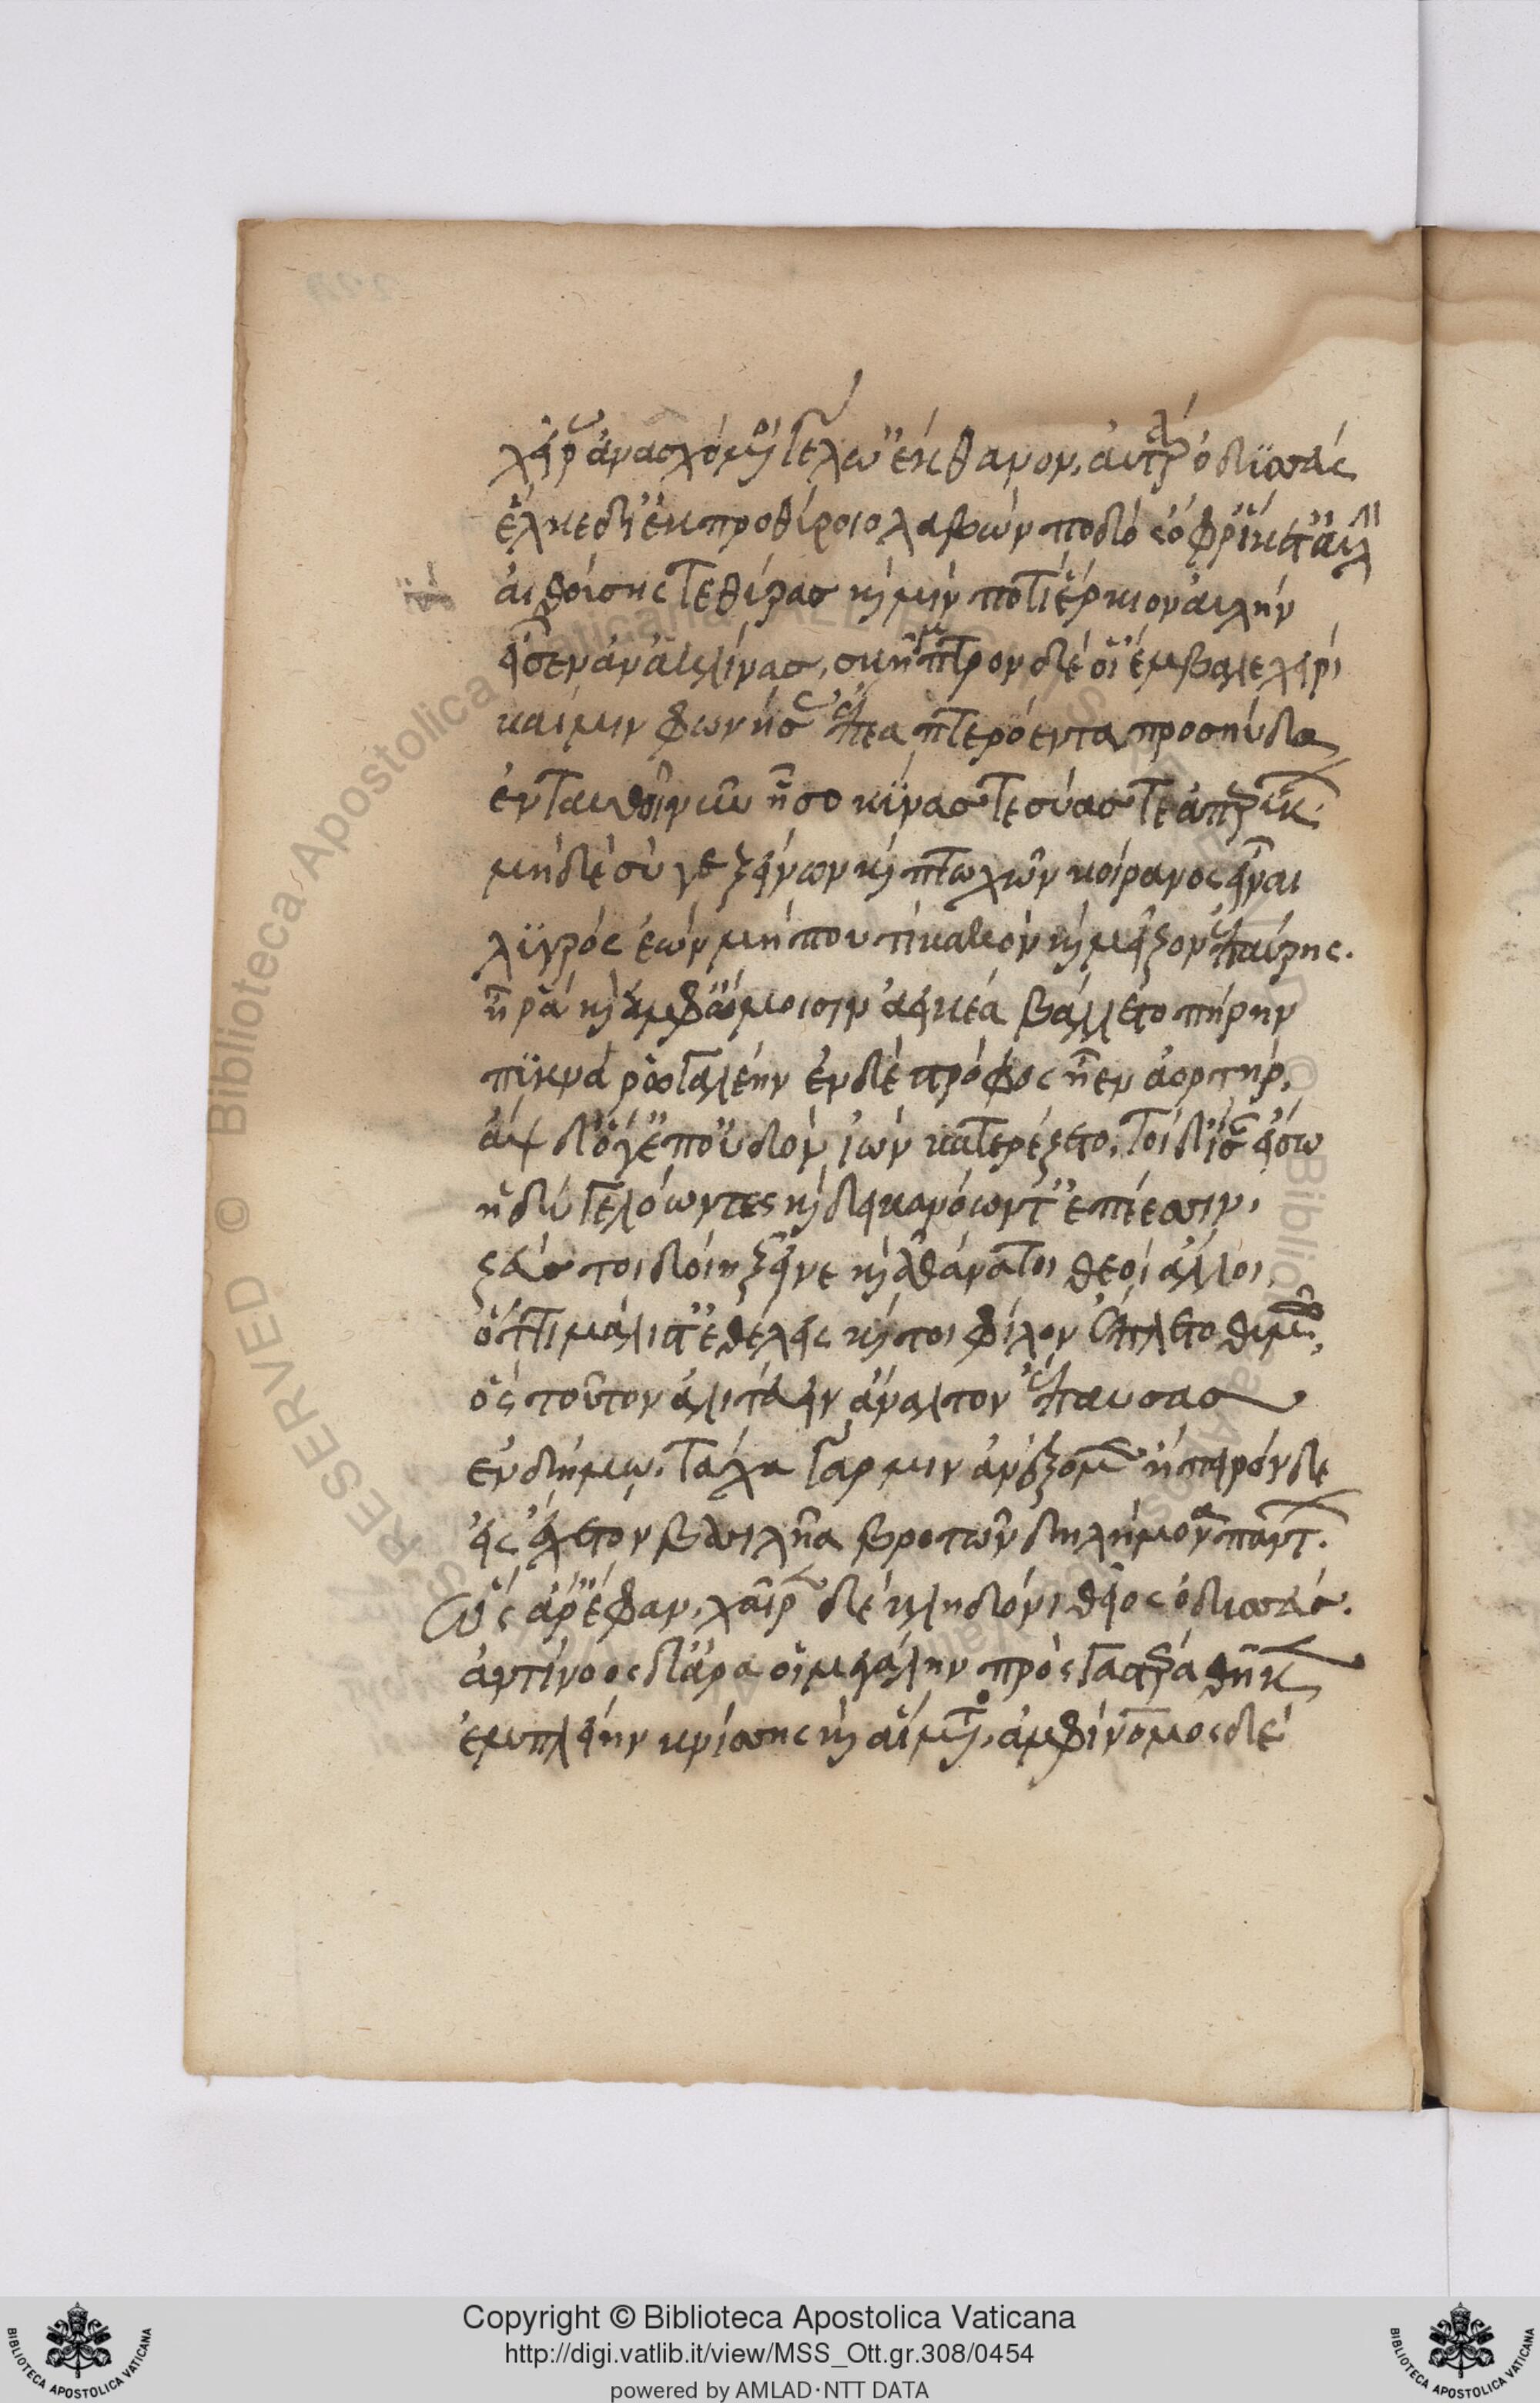 χεῖρας ἀνασχόμενοι γέλῳ ἔκθανον. αὐτὰρ ὀδϋσσεύς
ἕλκε δι' ἐκ προθύροιο λαβὼν ποδὸς ὄφρ' ἵκετ' αὐλὴν
αἰθούσης τε θύρας καὶ μὶν ποτὶ ἕρκιον αὐλῆν
εἷσεν ἀνακλίνας, σκῆπτρον δέ οἱ ἔμβαλε χειρὶ
καί μιν φωνήσας ἔπεα πτερόεντα προσηύδα
ἐνταυθοῖ νῦν ἧσο κύνας τε σύας τ' ἀπερύκων.
μηδὲ σύ γε ξείνων καὶ πτωχῶν κοίρανος εἶναι
λϋγρὸς ἐὼν μή πού τι κακὸν καὶ μεῖζον ἐπαύρης.
ἦ ῥα καὶ ἀμφ' ὤμοισιν ἀεικέα βάλλετο πήρην
πϋκνὰ ῥωγαλέην ἐν δὲ στρόφος ἦεν ἀορτήρ.
ἂψ δ' ὅγ' ἐπ' οὐδὸν ἰὼν κατ' ἄρ' ἕζετο. τοὶ δ' ἴσαν εἴσω
ἡδὺ γελόωντες καὶ δεικανόωντ' ἐπέεσσιν.
ζεύς τοι δοίη ξεῖνε καὶ ἀθάνατοι θεοὶ ἄλλοι.
ὅττι μάλιστ' ἐθέλεις καί τοι φίλον ἔπλετο θυμῷ,
ὃς τοῦτον ἀναλτον ἀπέπαυσας
ἐν δήμῳ. τάχα γάρ μιν ἀνάξομεν ἤπειρόνδε
εἰς ἔχετον βασιλῆα βροτῶν δηλήμονα πάντων.
Ὣς ἄρ' ἔφαν. χαῖρεν δὲ κληδόνι θεῖος ὀδυσσεύς.
ἀντίνοος δ' ἄρα οἱ μεγάλην πρὸς γαστέρα θῆκεν
ἐμπλείην κνίσσης καὶ αἵματος. ἀμφίνομος δὲ
Copyright © Biblioteca Apostolica Vaticana
http://digi.vatlib.it/view/MSS_Ott.gr.308/0454
powered by AMLAD·NTT DATA